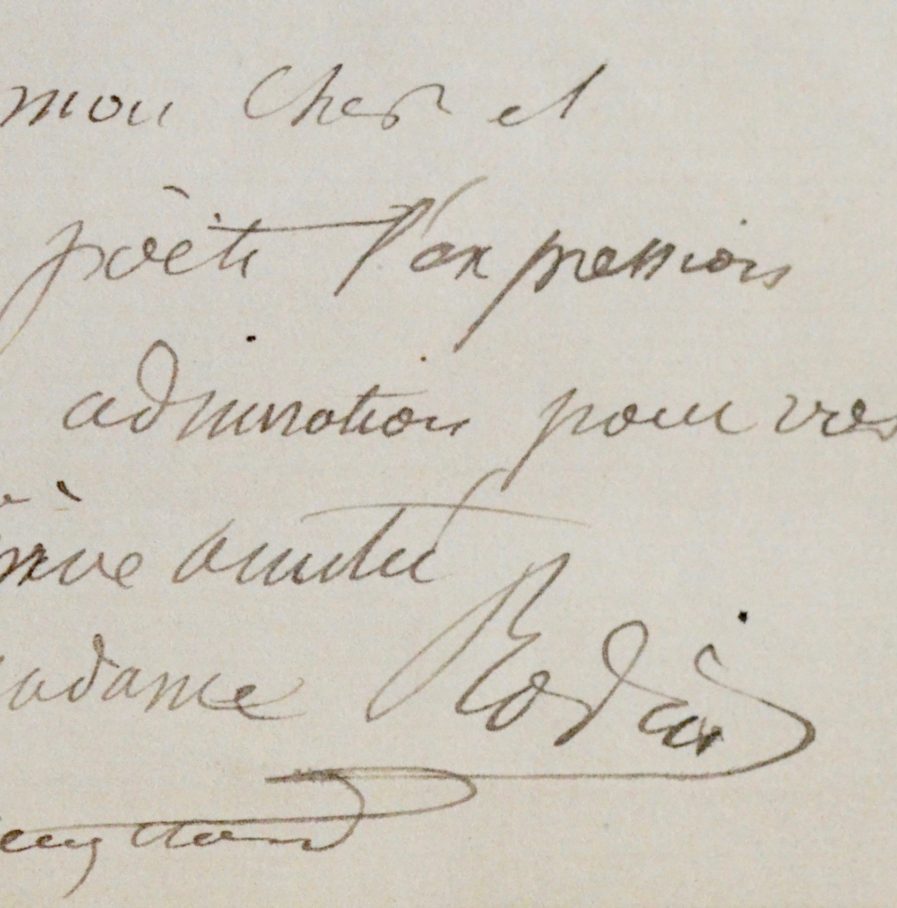 mon cher et
poète l'expression
admiration pour vos
amitié
madame Rodin